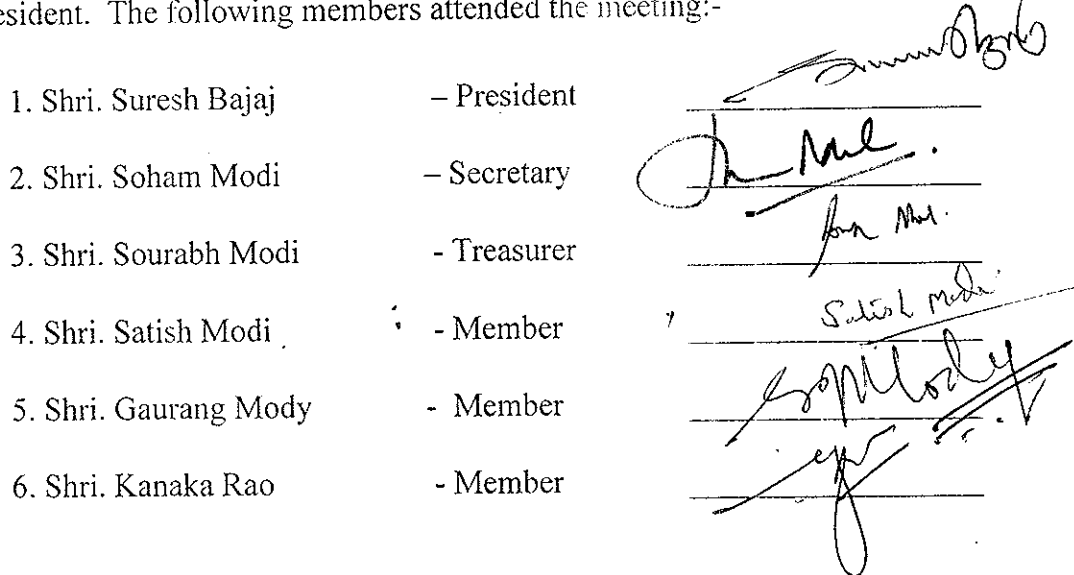 esident. The following members attended the meeting:-
1. Shri. Suresh Bajaj – President
2. Shri. Soham Modi – Secretary
3. Shri. Sourabh Modi - Treasurer
4. Shri. Satish Modi - Member Satish Modi
5. Shri. Gaurang Mody - Member
6. Shri. Kanaka Rao - Member